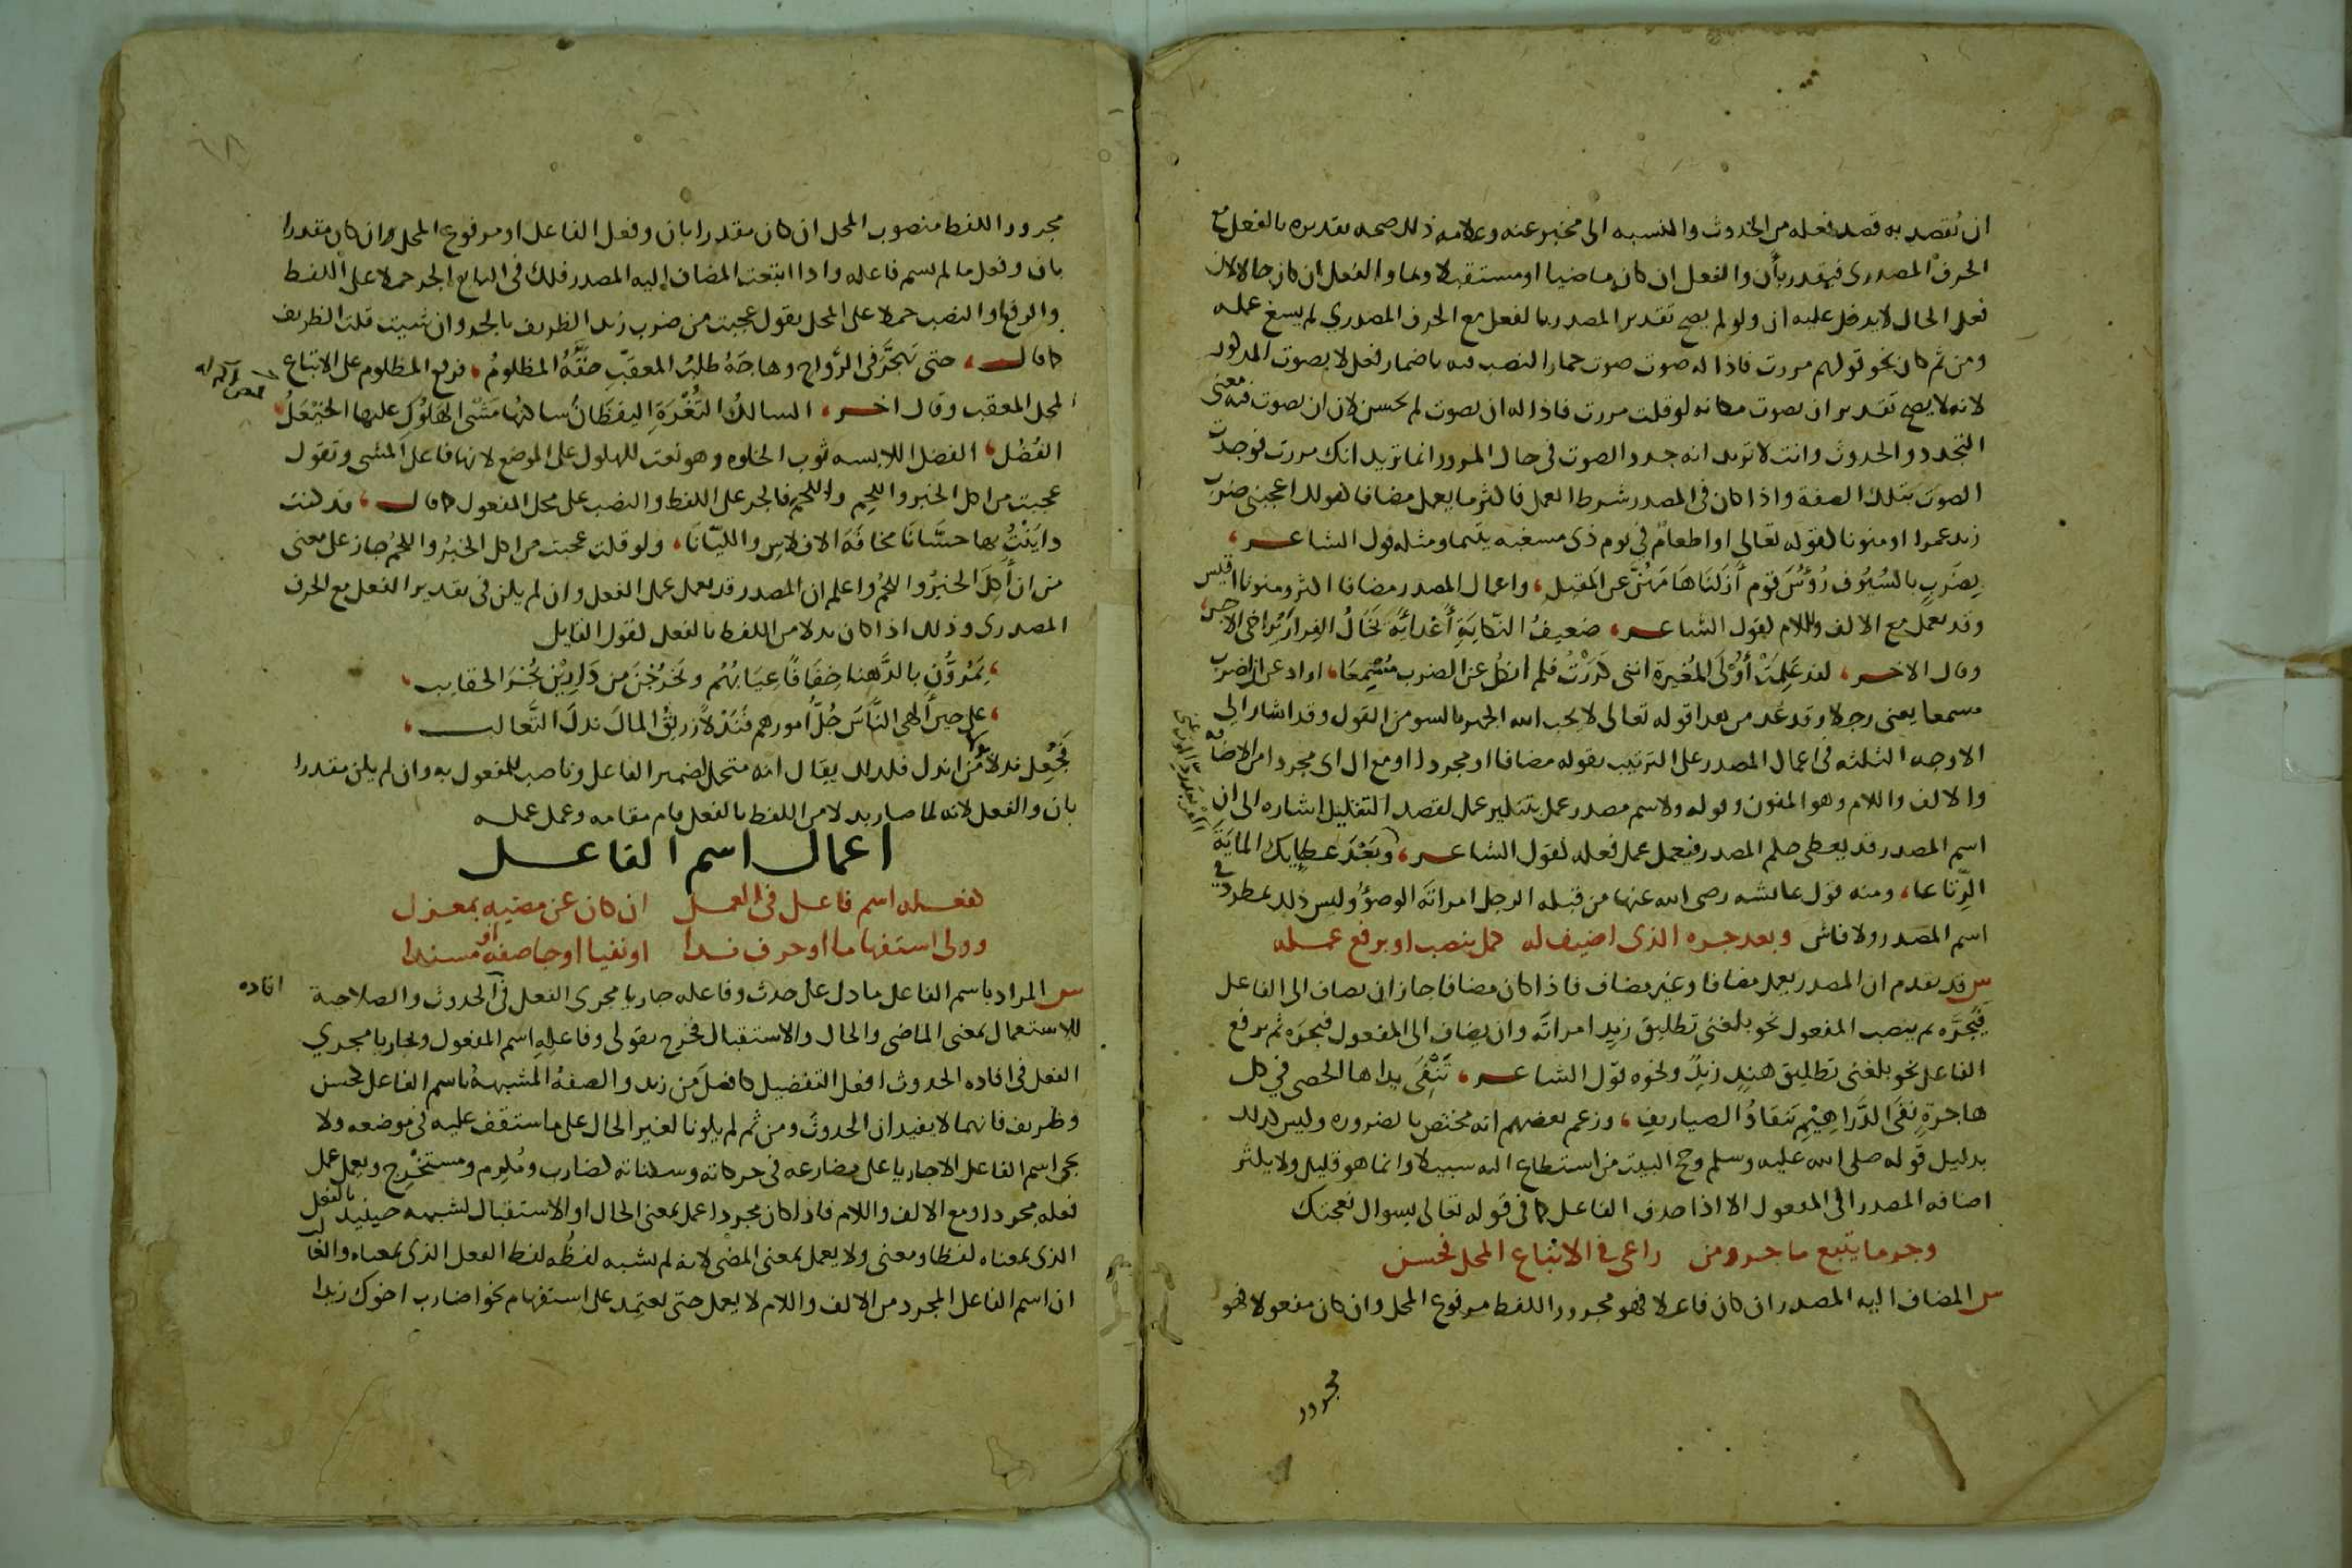 ان يُقصد به قصد فعله من الحدوث والنسبه الى مخبر عنه وعلامه ذلك صحه تقديره بالفعل مع
الحرف المصدرى فيقدر بأن والفعل ان كان ماضيا او مستقبلا وبما والفعل ان كان حالا لان
فعل الحال لا يدخل عليه ان ولو لم يصح تقدير المصدر بالفعل مع الحرف المصدري لم يسغ عمله
ومن ثم كان نحو قولهم مررت فاذا له صوت صوت حمار النصب فيه باضمار فعل لا بصوت المذكور
لانه لا يصح تقدير ان يصوت مكانه لو قلت مررت فاذا له ان يصوت لم يحسن لان ان يصوت فيه معنى
التجدد والحدوث وانت لا تريد انه جدد الصوت في حال المرور انما تريد انك مررت فوجدت
الصوت بتلك الصفة واذا كان في المصدر شرط العمل فاكثر ما يعمل مضافا كقولك اعجبنى ضرب
زيد عمرا او منونا كقوله تعالى او اطعام في يوم ذى مسغبه يتيما ومثله قول الشاعر
بِضَربٍ بالسُيُوف رُؤُسَ قوم أزَلنَا هَامَهُنَّ عن المَقيل، واعمال المصدر مضافا اكثر ومنونا اقيس
وقد يعمل مع الالف واللام كقول الشاعر، ضعيفُ النِّكايَةِ أَعْدَائَهُ يَخَالُ الفِرارَ يُراخى الاجل
وقال الاخر، لقد عَلِمَتْ أُوْلَى المُغيرة اننى كَرَرْتُ فلم انكُل عن الضرب مِسْمَعَا، اراد عن ان اضرب
مسمعا يعنى رجلا وقد عُد من هذا قوله تعالى لا يحب الله الجهر بالسو من القول وقد اشار الى
الاوجه الثلثه في اعمال المصدر على الترتيب بقوله مضافا او مجردا او مع ال اى مجردا من الاضافه
والالف واللام وهو المنون وقوله ولاسم مصدر عمل بتنكير عمل لقصد التقليل اشاره الى ان
اسم المصدر قد يعطى حكم المصدر فيعمل عمل فعله كقول الشاعر، وبَعْدَ عطايك المايَةَ
الرِّتاعا، ومنه قول عائشه رضى الله عنها من قبله الرجل امراتَه الوضوُ وليس ذلك بمطرد في
اسم المصدر ولا فاش وبعد جره الذى اضيف له كمل بنصب او برفع عمله
س قد تقدم ان المصدر يعمل مضافا وغير مضاف فاذا كان مضافا جاز ان يضاف الى الفاعل
فيَجُرَّه ثم ينصب المفعول نحو بلغنى تطليق زيدٍ امراتَه وان يضاف الى المفعول فيجرَه ثم يرفع
الفاعل نحو بلغنى تطليق هندٍ زيدٌ ونحوه قول الشاعر، تَنْفِى يداها الحصى في كل
هاجرةٍ نفىَ الدَّراهِيْمِ تَنقادُ الصياريف، وزعم بعضهم انه مختص بالضروره وليس كذلك
بدليل قوله صلى الله عليه وسلم وحج البيت من استطاع اليه سبيلا وانما هو قليل ولا يكثر
اضافه المصدر الى المفعول الا اذا حذف الفاعل كما في قوله تعالى بسوال نعجتك
وجر ما يتبع ما جر ومن راعى في الاتباع المحل فحسن
س المضاف اليه المصدر ان كان فاعلا فهو مجرور اللفظ مرفوع المحل وان كان مفعولا فهو
مجرور
مجرور اللفظ منصوب المحل ان كان مقدرا بان وفعل الفاعل او مرفوع المحل وان كان مقدرا
بان وفعل ما لم يسم فاعله واذا اتبعت المضاف إليه المصدر فلك في التابع الجر حملا على اللفظ
والرفع او النصب حملا على المحل يقول عجبت من ضرب زيد الظريف بالجر وان شيت قلت الظريف
كما قال، حتى تَهَجَّرَ في الرَّواح وهاجَهُ طلبُ المعقِّبِ حقَّهُ المظلومُ، فرفع المظلوم على الاتباع
لمحل المعقب وقال اخر، السالكُ الثُغْرَةَ اليقظَانُ سالكُها مَشْىَ الهَلُوكِ عليها الخَيْعَلُ
الفُضُلُ، الفضل اللابسه ثوب الخلوه وهو نعت للهلوك على الموضع لانها فاعل المشى وتقول
عجبت من اكل الخبز واللحمِ واللحمَ فالجر على اللفظ والنصب على محل المفعول كما قال، قد كنت
دايَنْتُ بها حسَّانَا مخافَةَ الافلاسِ والليّانَا، ولو قلت عجبت من اكل الخبز واللحمُ جاز على معنى
من ان أُكِلَ الخبزُ واللحمُ واعلم ان المصدر قد يعمل عمل الفعل وان لم يكن في تقدير الفعل مع الحرف
المصدرى وذلك اذا كان بدلا من اللفظ بالفعل كقول القايل
يَمُرُّونَ بالدَّهنا خِفَافًا عِيَابُهُم ويَخرُجْنَ من دَارِيْنَ بُجْرَ الحقايب
على حينَ الهى النَّاسَ جُلُّ امورهم فَنَدْلًا زريقُ المالَ ندلَ الثَّعالب
فجُعِل ندلا بدلا من اندل فلذلك يقال انه متحمل لضمير الفاعل وناصب للمفعول به وان لم يكن مقدرا
بان والفعل لانه لما صار بدلا من اللفظ بالفعل قام مقامه وعمل عمله
اعمال اسم الفاعل
كفعله اسم فاعل في العمل ان كان عن مضيه بمعزل
وولى استفهاما او حرف ندا او نفيا او جا صفة او مسندا
س المراد باسم الفاعل ما دل على حدث وفاعله جاريا مجرى الفعل في الحدوث والصلاحية
افاده
للاستعمال بمعنى الماضى والحال والاستقبال فخرج بقولى وفاعلِهِ اسم المفعول وبجاريا مجري
الفعل في افاده الحدوث افعل التفضيل كافضل من زيد والصفةُ المشبهةُ باسم الفاعل كحسن
وظريف فانهما لا يفيدان الحدوثَ ومن ثم لم يكونا لغير الحال على ما ستقف عليه في موضعه ولا
يجى اسم الفاعل الا جاريا على مضارعه في حركاته وسكناته كضارب ومُكرِم ومستخْرِج ويعمل عمل
فعله مجردا ومع الالف واللام فاذا كان مجردا عمل بمعنى الحال او الاستقبال لشبهه حينيذ بالفعل
الذى بمعناه لفظا ومعنى ولا يعمل بمعنى المضى لانه لم يشبه لفظُه لفظ الفعل الذى بمعناه والغا
ان اسم الفاعل المجرد من الالف واللام لا يعمل حتى يعتمد على استفهام نحو اضارب اخوك زيدا